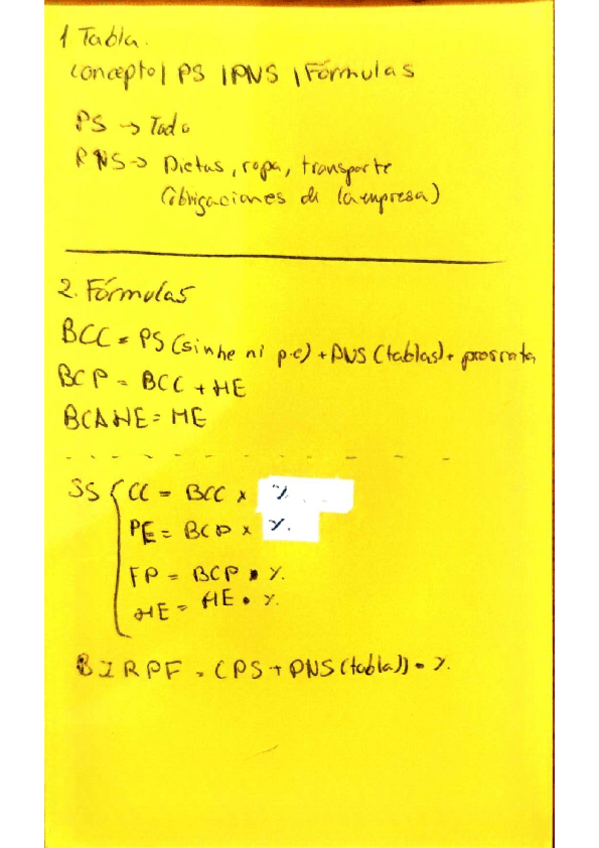 1 Tabla.
Concepto | PS | PNS | Fórmulas
PS → Todo
PNS → Dietas, ropa, transporte
(obrigaciones de la empresa)
2. Fórmulas
BCC = PS (sin he ni p.e) + PNS (tablas) + prorrata
BCP = BCC + HE
BCAHE = HE
SS { CC = BCC x %
PE = BCP x %.
FP = BCP • %.
HE = HE • %.
BIRPF = (PS + PNS (tabla)) • %.